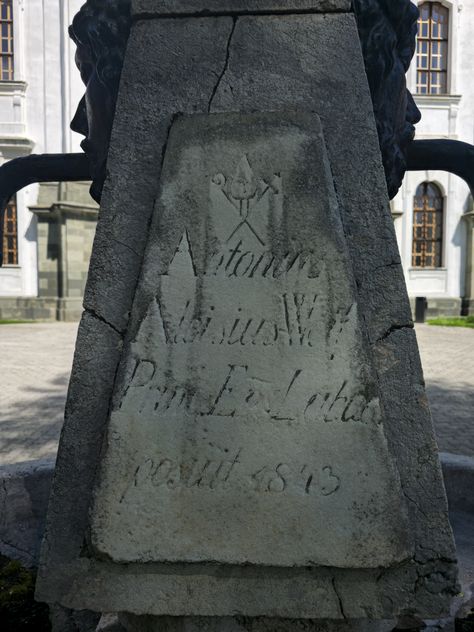 Antonius
Aloisius Wolf
Prin. Ep̄s Labac
posuit 1843